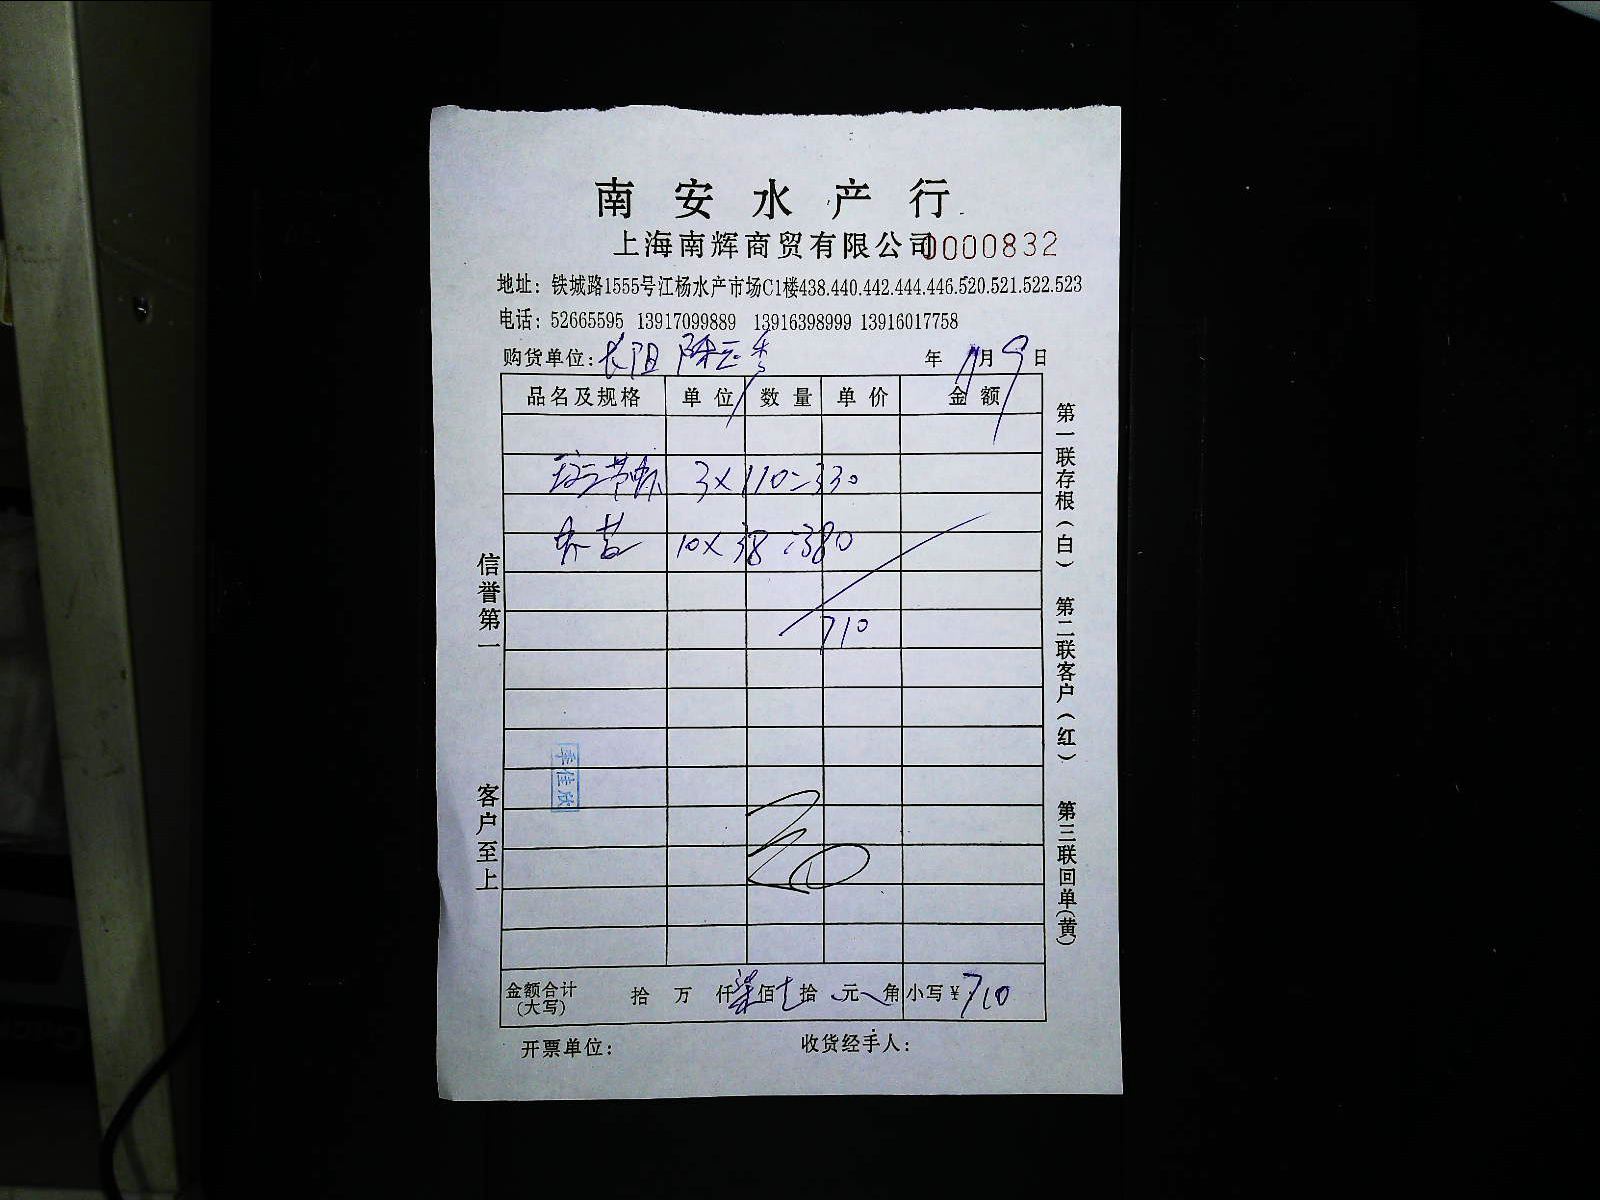 南安水产行
上海南辉商贸有限公司 0000832
地址：铁城路1555号江杨水产市场C1楼438.440.442.444.446.520.521.522.523
电话：52665595 13917099889 13916398999 13916017758
购货单位：长阳 陈云秀 年 月 9 日
品名及规格 单位 数量 单价 金额
3×110=330
10×38=380
710
信誉第一
客户至上
李佳欣
金额合计（大写） 拾 万 仟 柒 佰 拾 元 角 小写￥710
开票单位： 收货经手人：
第一联存根（白） 第二联客户（红） 第三联回单（黄）